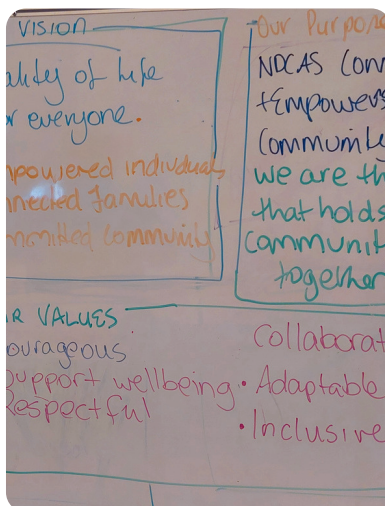 VISION
ality of Life
r everyone.
mpowered individuals
nnected families
mmitted Community
Our Purpos
NDCAS Conn
+Empowers
Communitie
we are th
that holds
Communit
together
R VALUES
ourageous
Support wellbeing
Respectful
Collaborat
• Adaptable
• Inclusive